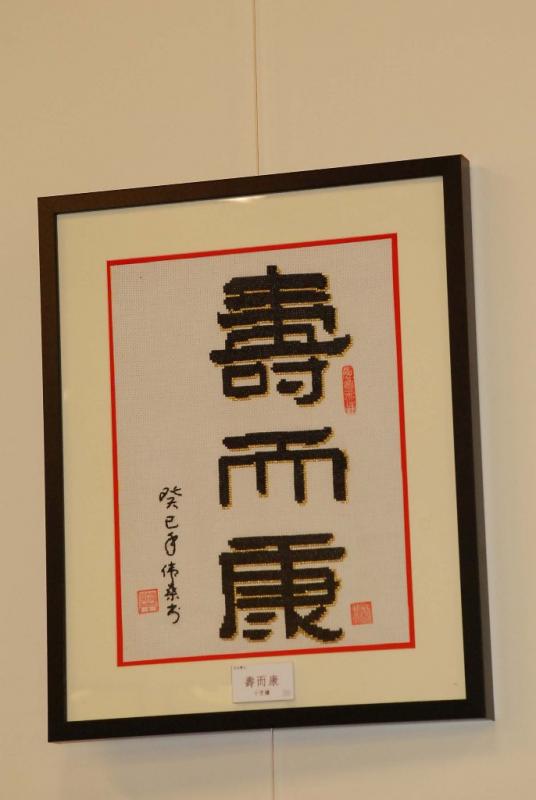 壽而康
癸巳年伟燊书
壽而康